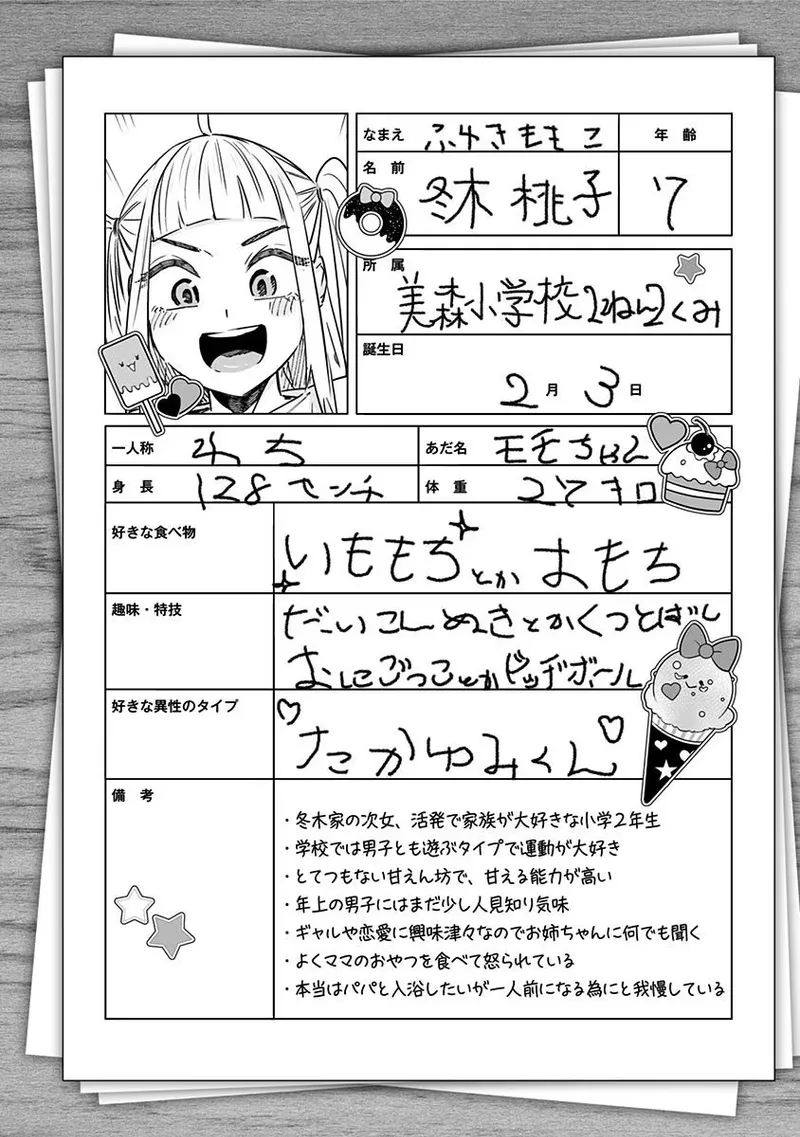 なまえ ふゆきももこ
年齢
名前 冬木 桃子
7
所属
美森小学校2ねん2くみ
誕生日
2月3日
一人称 わち
あだ名 モモちゃん
身長 128センチ
体重 27キロ
好きな食べ物
いももちとか おもち
趣味・特技
だいこんぬきとかくつとばし
おにごっことかドッヂボール
好きな異性のタイプ
たかゆみくん
備考
・冬木家の次女、活発で家族が大好きな小学2年生
・学校では男子とも遊ぶタイプで運動が大好き
・とてつもない甘えん坊で、甘える能力が高い
・年上の男子にはまだ少し人見知り気味
・ギャルや恋愛に興味津々なのでお姉ちゃんに何でも聞く
・よくママのおやつを食べて怒られている
・本当はパパと入浴したいが一人前になる為にと我慢している